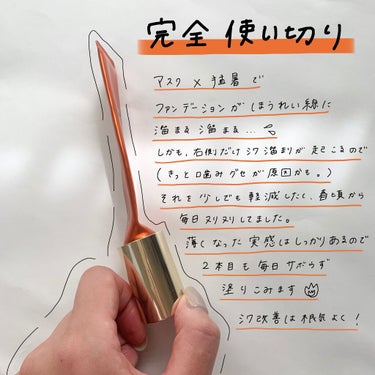 完全 使い切り
マスク × 猛暑 で
ファンデーションが ほうれい線に
溜まる 溜まる...
しかも、右側だけ シワ 溜まりが 起こるので
(きっと 噛みグセが 原因かも。)
それを 少しでも 軽減したく、春頃から
毎日 ヌリヌリしてました。
薄くなった 実感は しっかりあるので
2本目も 毎日 サボらず
塗りこみます
シワ改善は 根気よく!